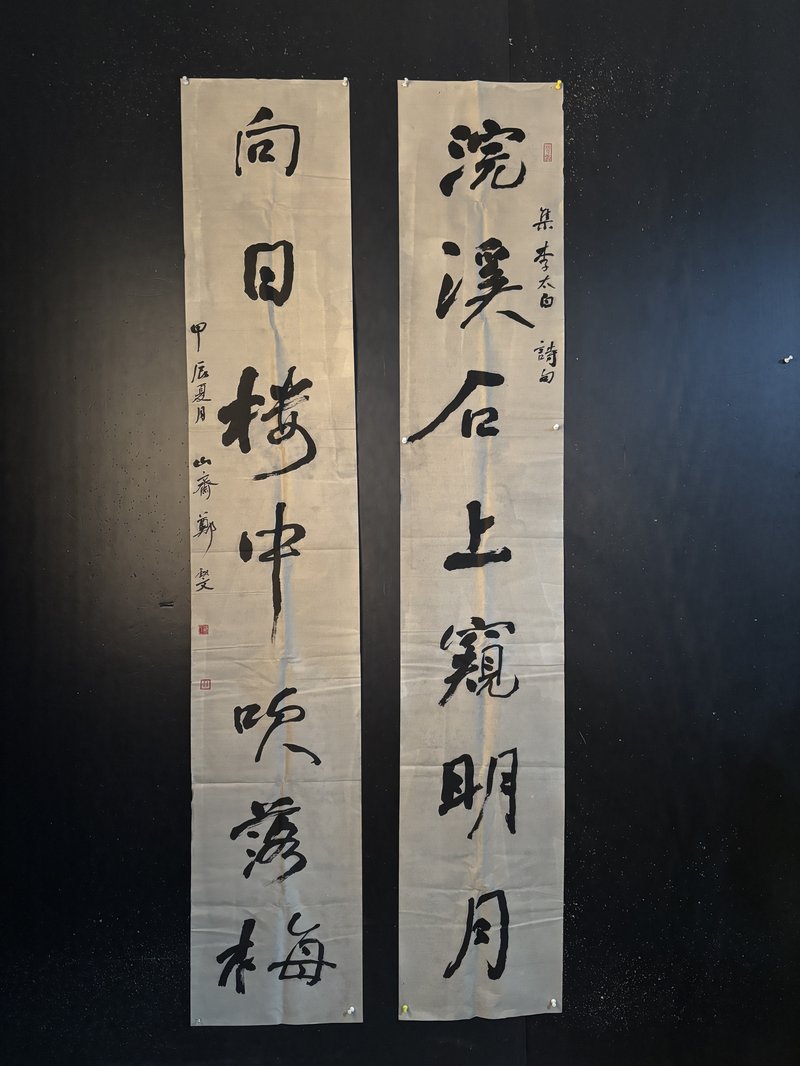 浣溪石上窺明月
集李太白詩句
向日樓中吹落梅
甲辰夏月山齋鄭